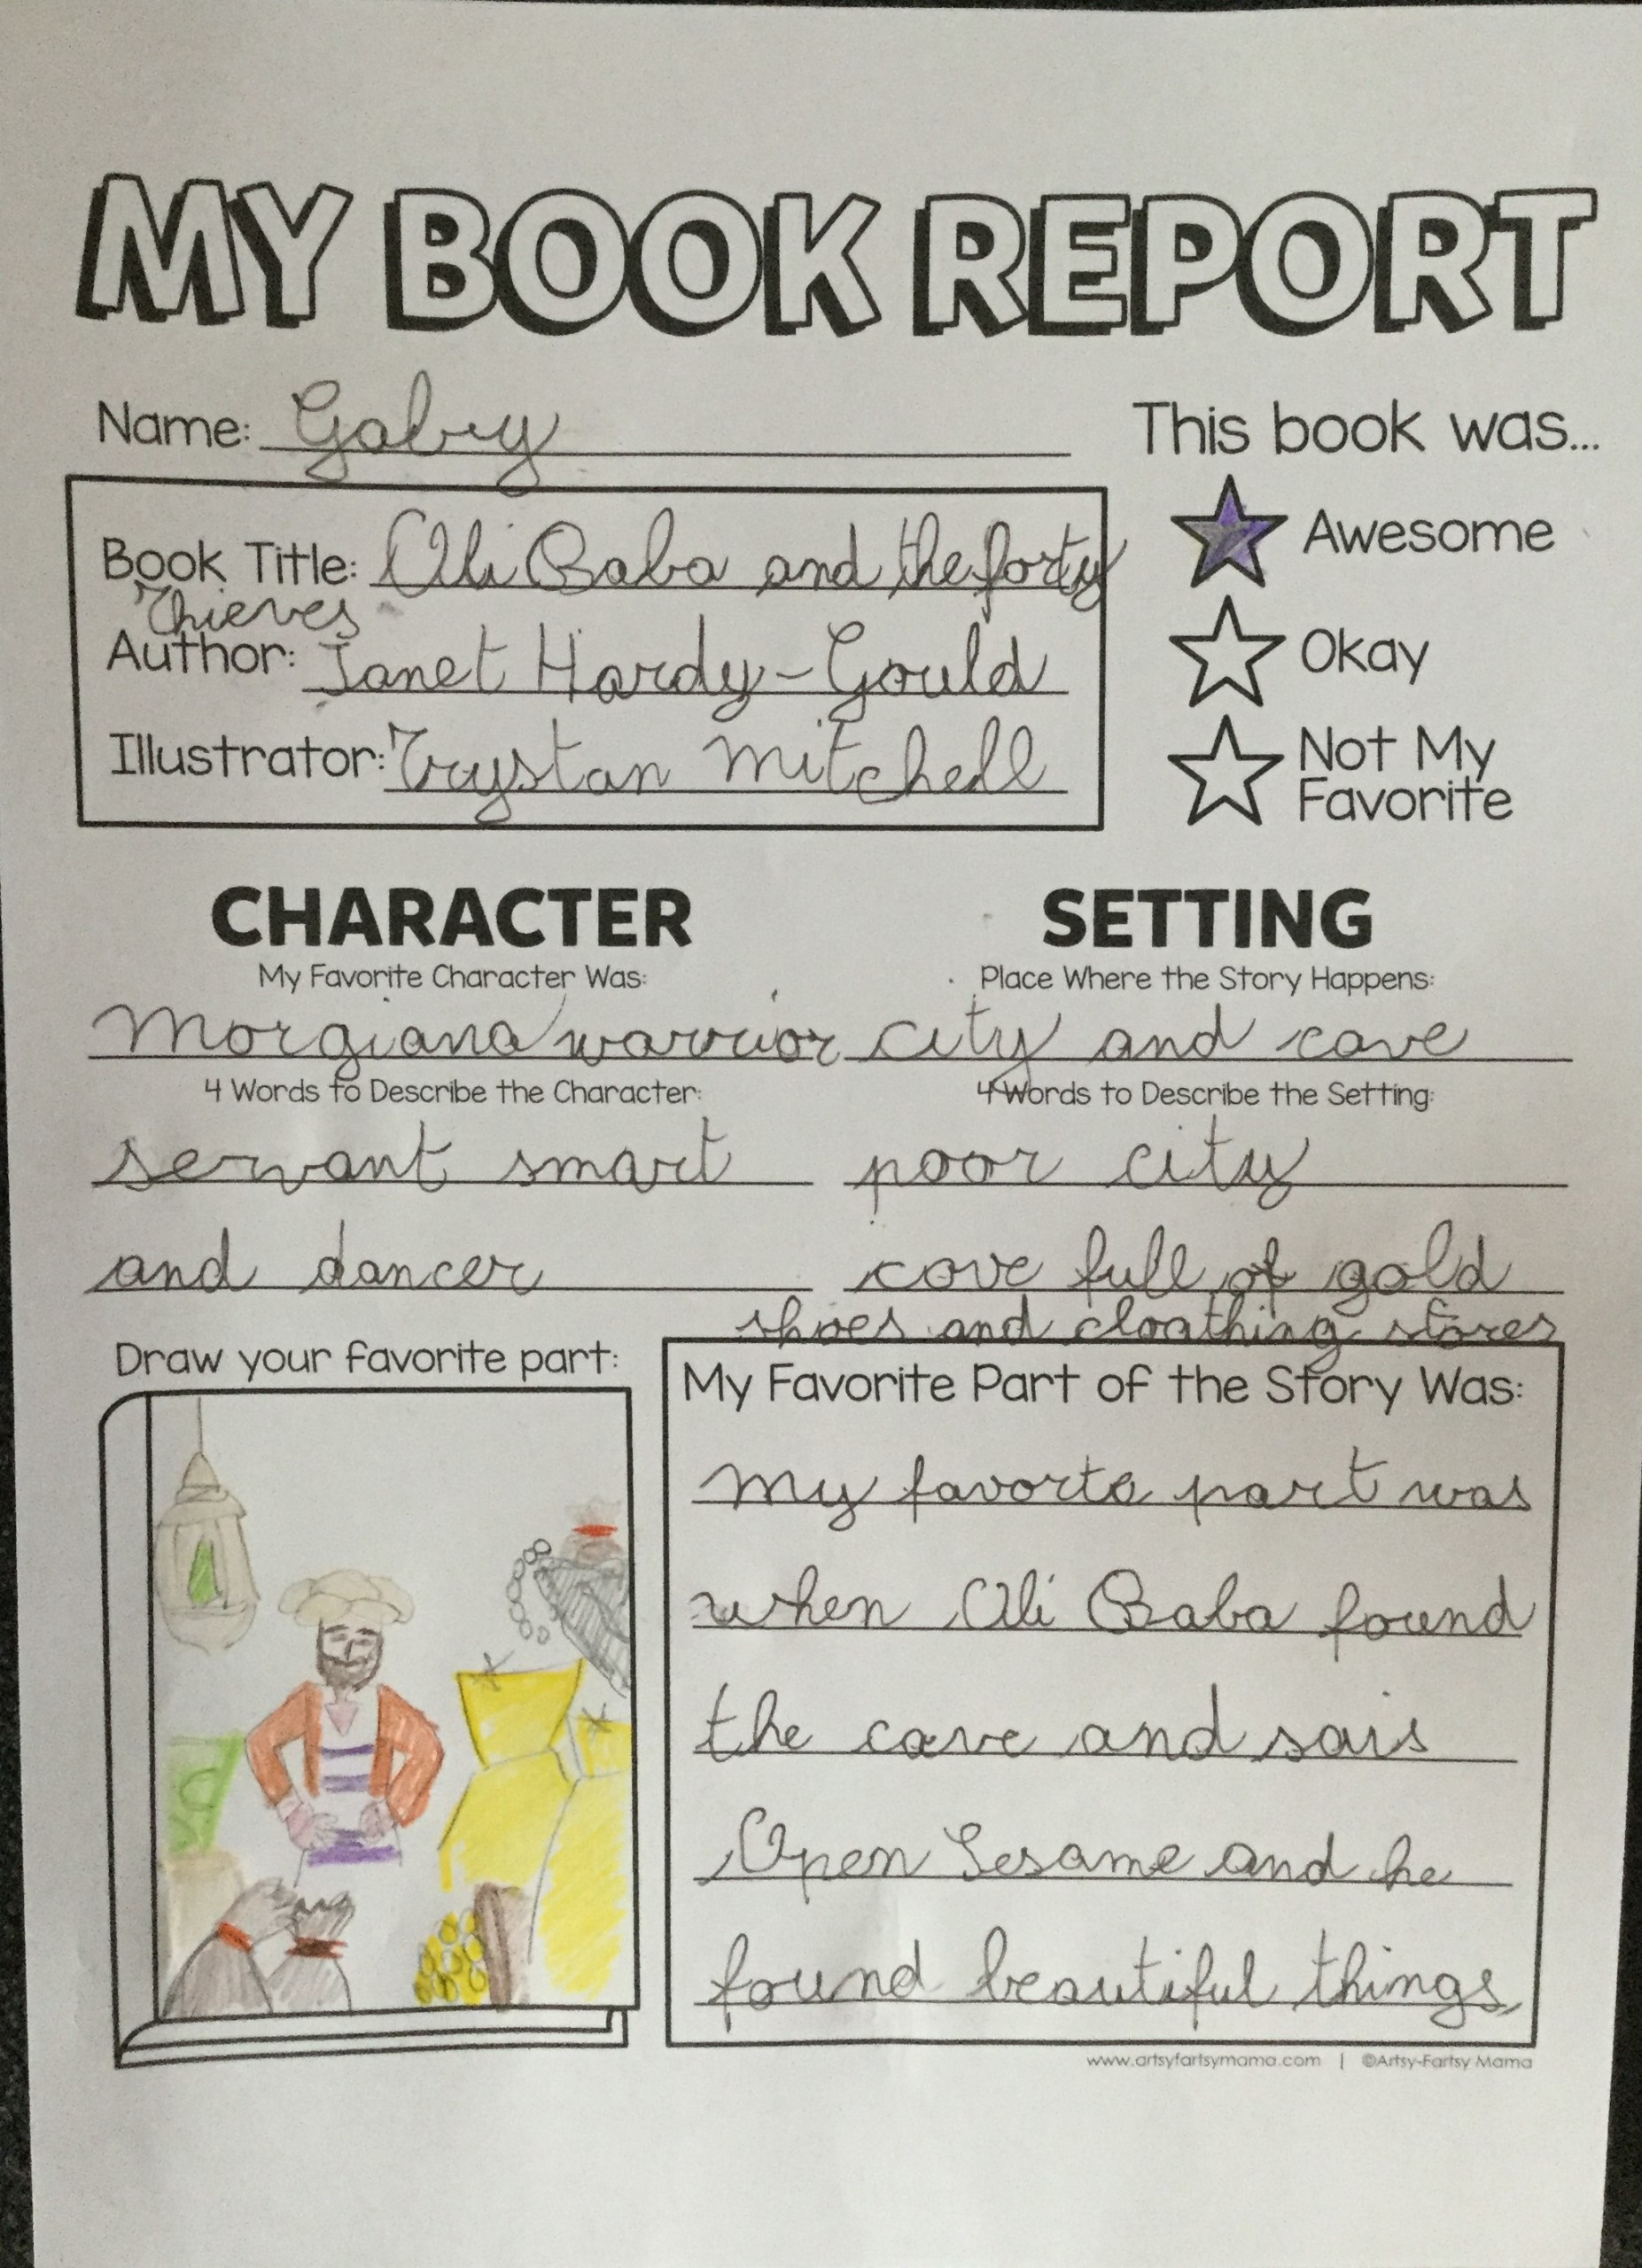 MY BOOK REPORT
Name: Gabry
This book was...
Book Title: Ali Baba and the forty
Thieves
Author: Janet Hardy-Gould
Illustrator: Trystan Mitchell
Awesome
Okay
Not My
Favorite
CHARACTER
My Favorite Character Was:
Morgiana warrior
4 Words to Describe the Character:
servant smart
and dancer
SETTING
Place Where the Story Happens:
city and cave
4 Words to Describe the Setting:
poor city
cove full of gold
shoes and cloathing stores
Draw your favorite part:
My Favorite Part of the Story Was:
My favorte part was
when Ali Baba found
the cave and sais
Open Sesame and he
found beautiful things
www.artsyfartsymama.com | ©Artsy-Fartsy Mama